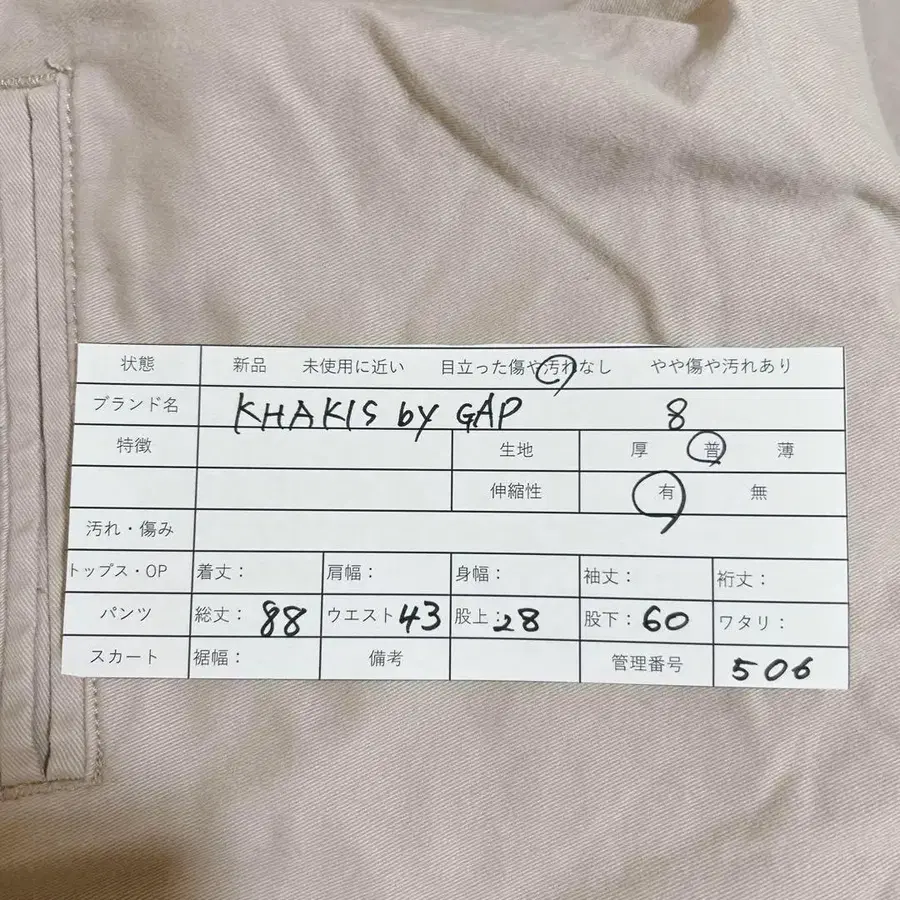 状態 新品 未使用に近い 目立った傷や汚れなし やや傷や汚れあり
ブランド名 KHAKIS by GAP 8
特徴 生地 厚 普 薄
伸縮性 有 無
汚れ・傷み
トップス・OP 着丈： 肩幅： 身幅： 袖丈： 裄丈：
パンツ 総丈：88 ウエスト43 股上：28 股下：60 ワタリ：
スカート 裾幅： 備考 管理番号 506